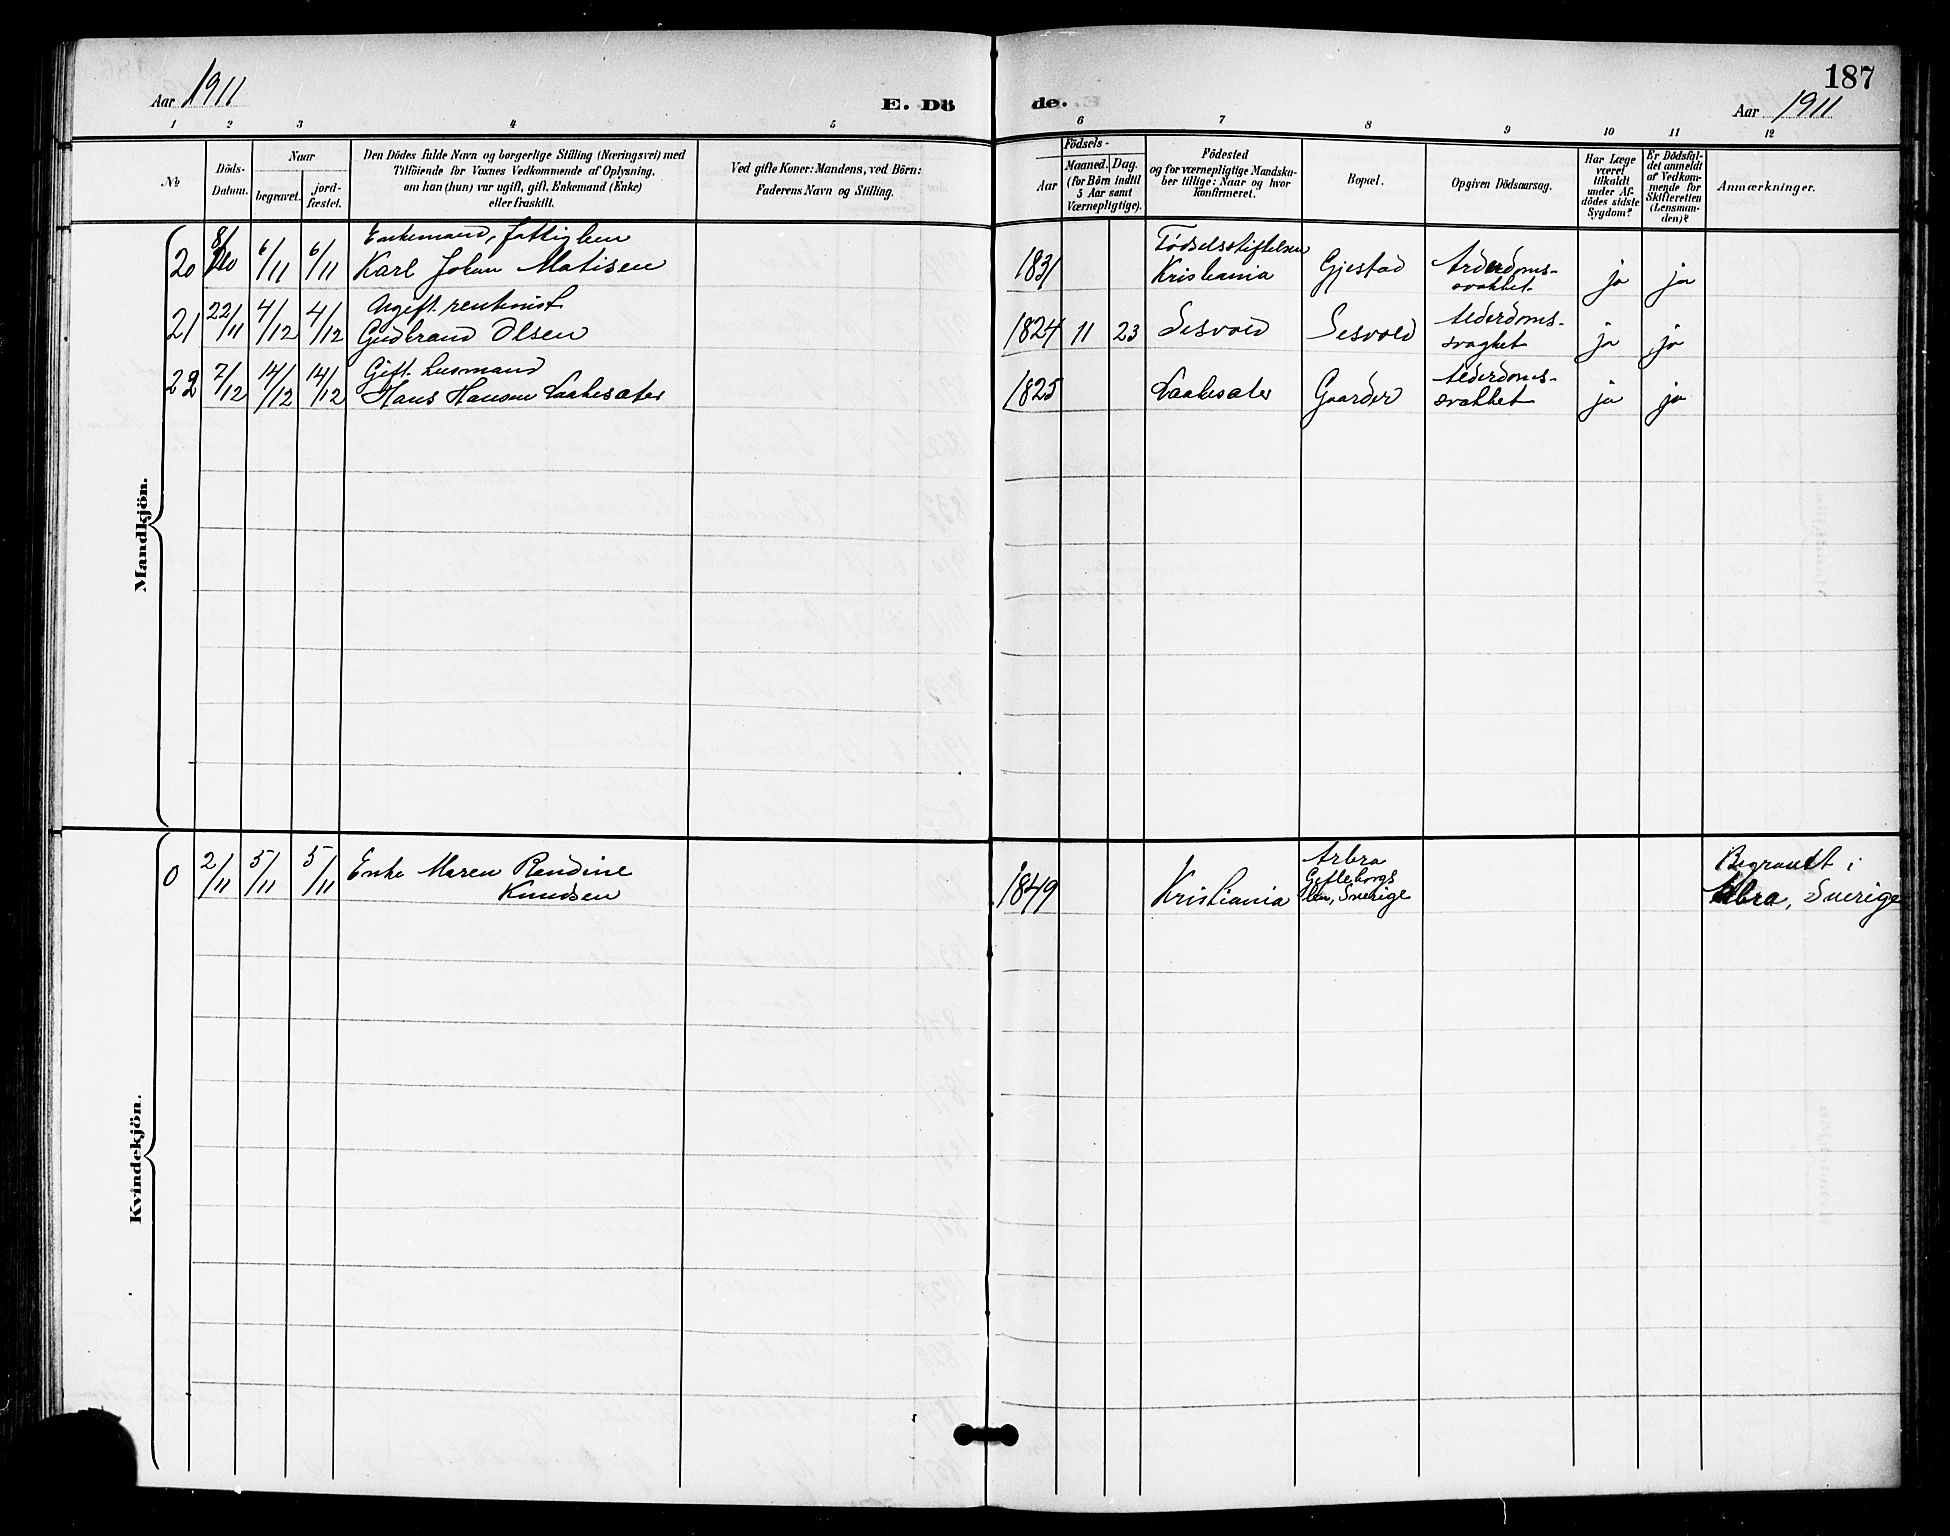 187
Aar 1911
E. Dö de.
Aar 1911
1 2 3 4 5 6 7 8 9 10 11 12
No
Döds-
Datum.
Naar
begravet.
jord-
fæstet.
Den Dödes fulde Navn og borgerlige Stilling (Næringsvei) med
Tilföiende for Voxnes Vedkommende af Oplysning,
om han (hun) var ugift, gift, Enkemand (Enke)
eller fraskilt.
Ved gifte Koner: Mandens, ved Börn:
Faderens Navn og Stilling.
Födsels-
Aar
Maaned. Dag.
(for Börn indtil
5 Aar samt
Værnepligtige).
Födested
og for værnepligtige Mandska-
ber tillige: Naar og hvor
konfirmeret.
Bopæl.
Opgiven Dödsaarsag.
Har Læge
været
tilkaldt
under Af-
dödes sidste
Sygdom?
Er Dödsfal-
det anmeldt
af Vedkom-
mende for
Skifteretten
(Lensman-
den)?
Anmærkninger.
Mandkjön.
20 6/11 6/11 Enkemand,
Karl Johan Matisen
1831 Fødselsstiftelsen
Kristiania Gjestad
svakhet ja ja
21 22/11 4/12 4/12 Ugift.
Gudbrand Olsen
1824 11 23 Sesvold Sesvold Alderdoms-
svaghet ja ja
22 7/12 14/12 14/12 Gift.
Hans Hansen Laakesæter
1825 Laakesæter Gaarder Alderdoms-
svakhet ja ja
Kvindekjön.
0 2/11 5/11 5/11 Enke Maren Randine
Knudsen
1849 Kristiania Arbra
Gefleborgs
len, Sverige
Begravet i
Arbra, Sverige